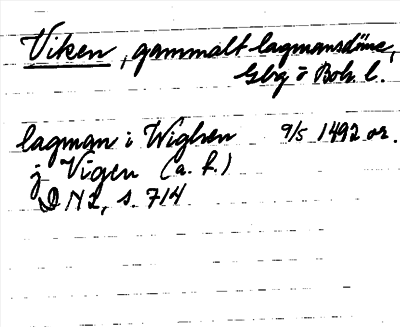 Viken, gammalt lagmansdöme,
Gbg o Boh. l.
lagman i Wighen 9/5 1492 or.
j Vigen (a. h.)
DN 2, s. 714